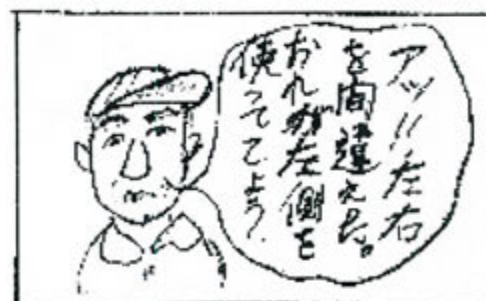 アッ!!左右
を間違えた。
おれが左側を
使っててよう?